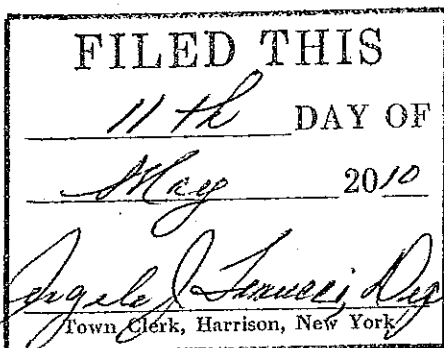 FILED THIS
11th DAY OF
May 2010
Angelo J.
Town Clerk, Harrison, New York